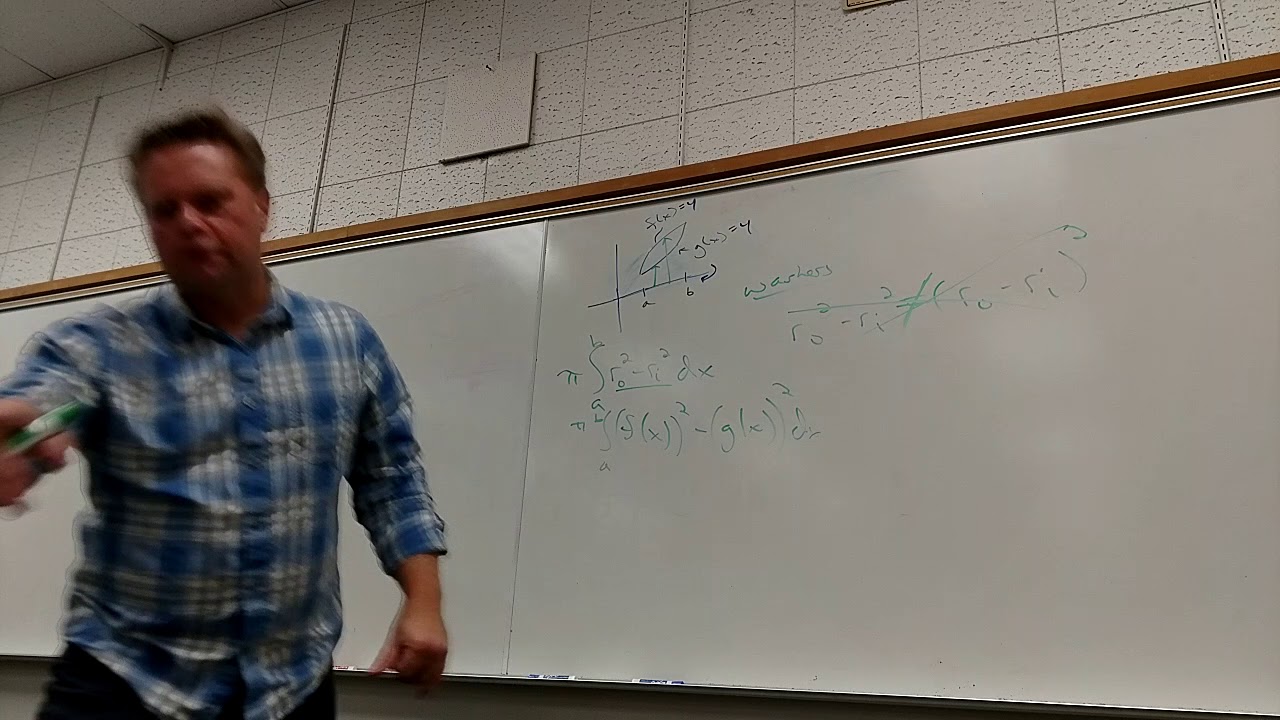 f(x)=y
g(x)=y
a b
washers
r₀² - rᵢ² ≠ (r₀ - rᵢ)²
π ∫ₐᵇ r₀² - rᵢ² dx
π ∫ₐᵇ (f(x))² - (g(x))² dx